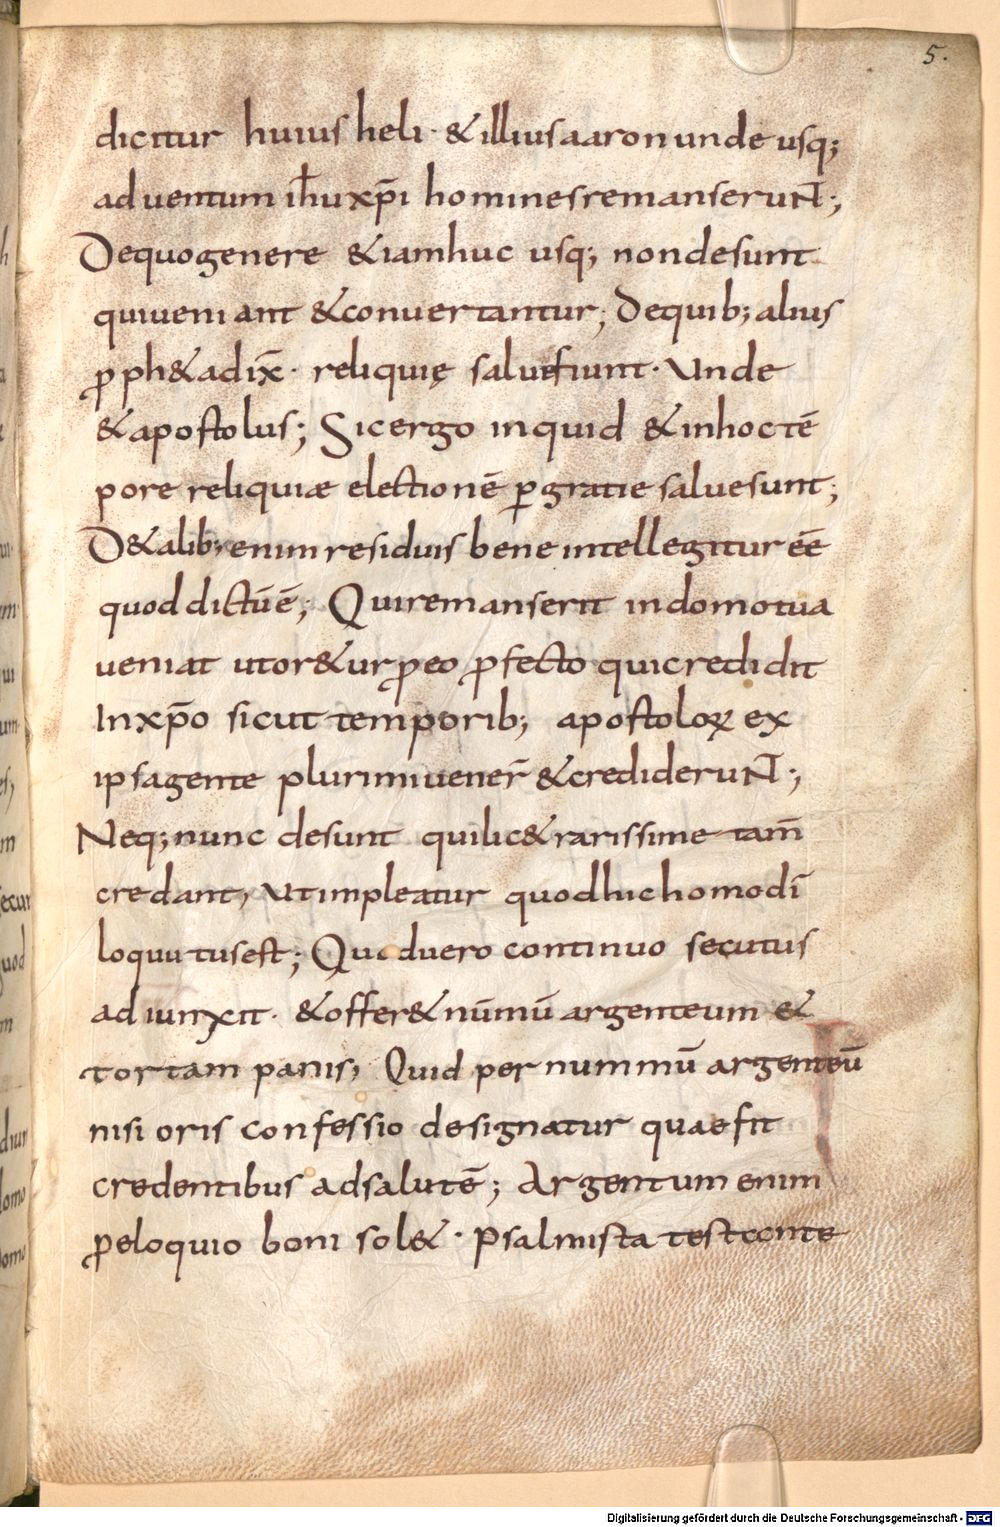 5.
dicitur huius heli · & illius aaron unde usq;
ad uentum ih̅u xp̅i homines remanseruNT;
De quo genere & iam huc usq; non desunt
qui ueniant & conuertantur; De quib; alius
ꝓph&a dix̅ · reliquię salue fiunt · Unde
& apostolus; Sic ergo inquid & in hoc tē
pore reliquiæ electionē ꝑ gratie salue sunt;
D& alib; enim residuis bene intellegitur ēē
quod dictū ē; Qui remanserit in domo tua
ueniat ut or&ur ꝓ eo ꝓfecto qui credidit
In xp̅o sicut temporib; apostoloꝝ ex
ipsa gente plurimi uener̄ & credideruNT;
Neq; nunc desunt qui lic& rarissime tam̅
credant, Ut impleatur quod hic homo dī
loquutus est; Quod uero continuo secutus
adiunxit · & offer& nūmū argenteum &
tortam panis; Quid per nummū argenteū
nisi oris confessio designatur quae fit
credentibus ad salutē; Argentum enim
ꝓ eloquio boni sol& · psalmista testconte
Digitalisierung gefördert durch die Deutsche Forschungsgemeinschaft - DFG